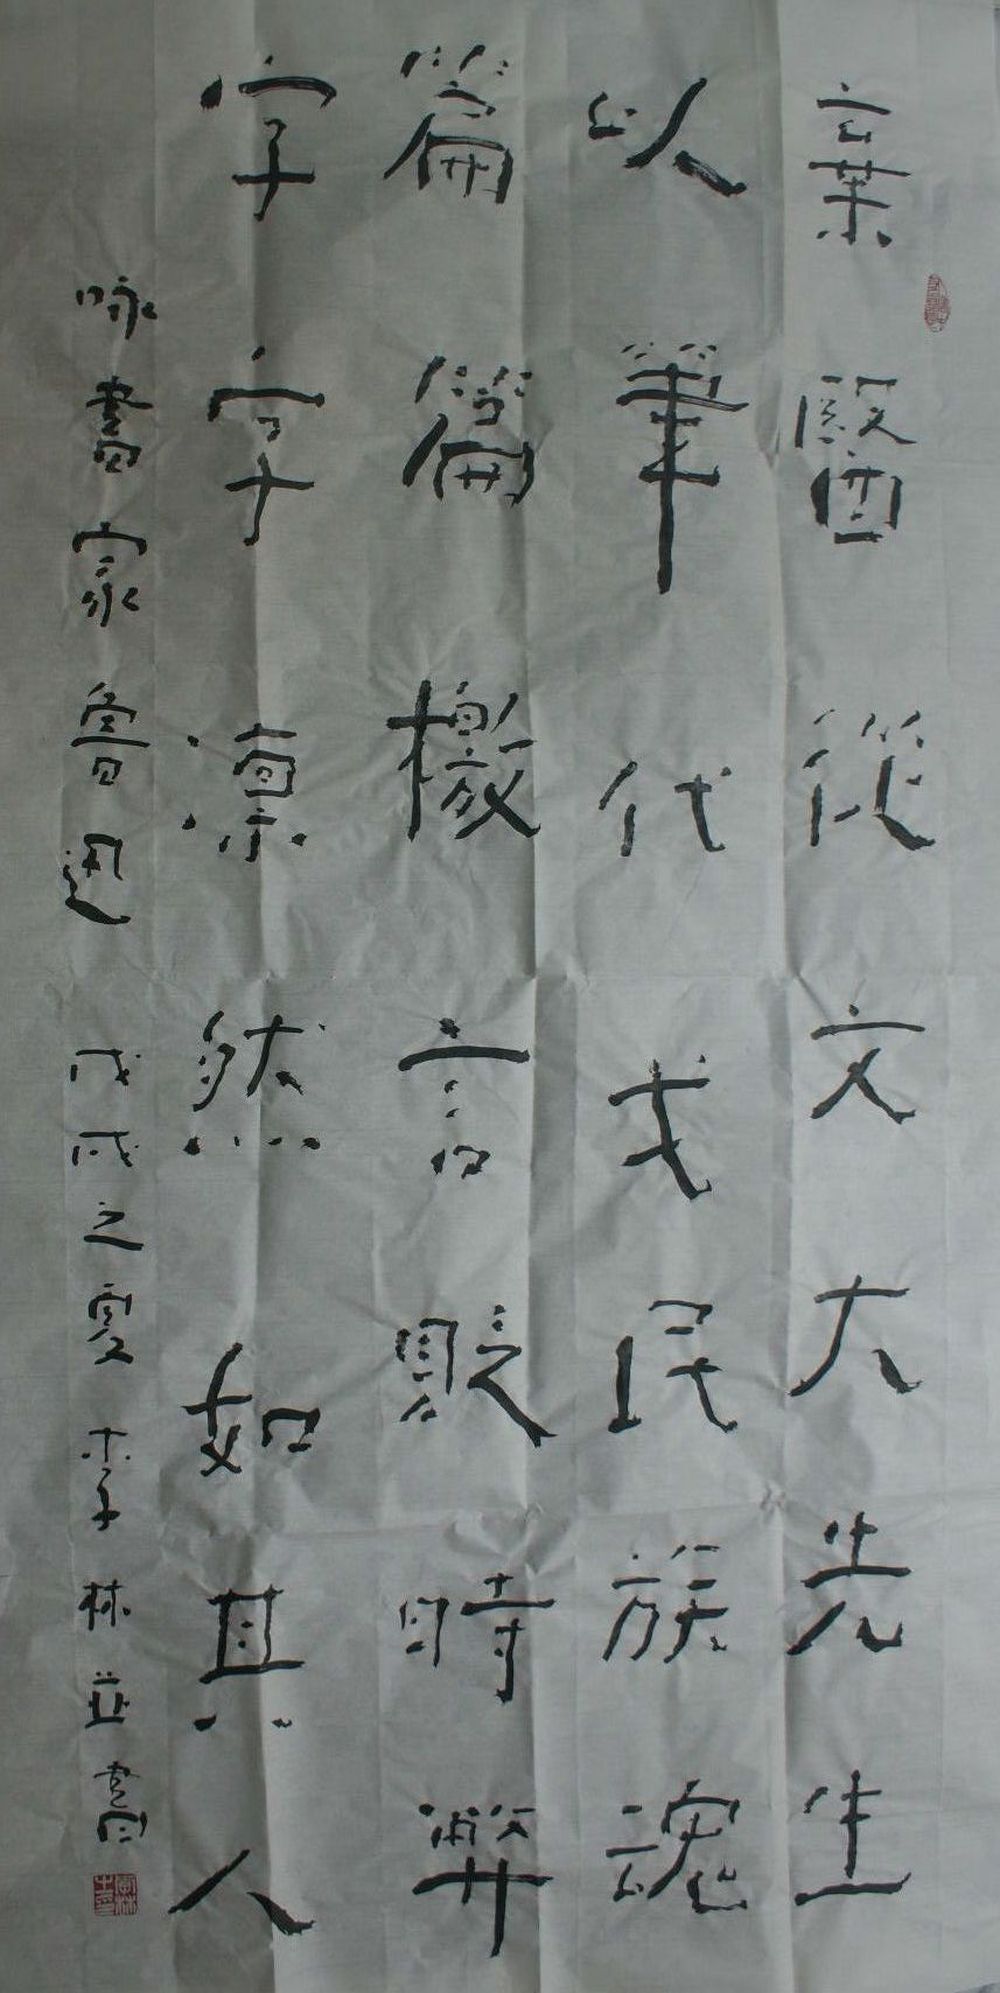 棄醫從文大先生
以筆代戈民族魂
篇篇檄言貶時弊
字字凛然如其人
咏書家魯迅 戊戌之夏 李林並書